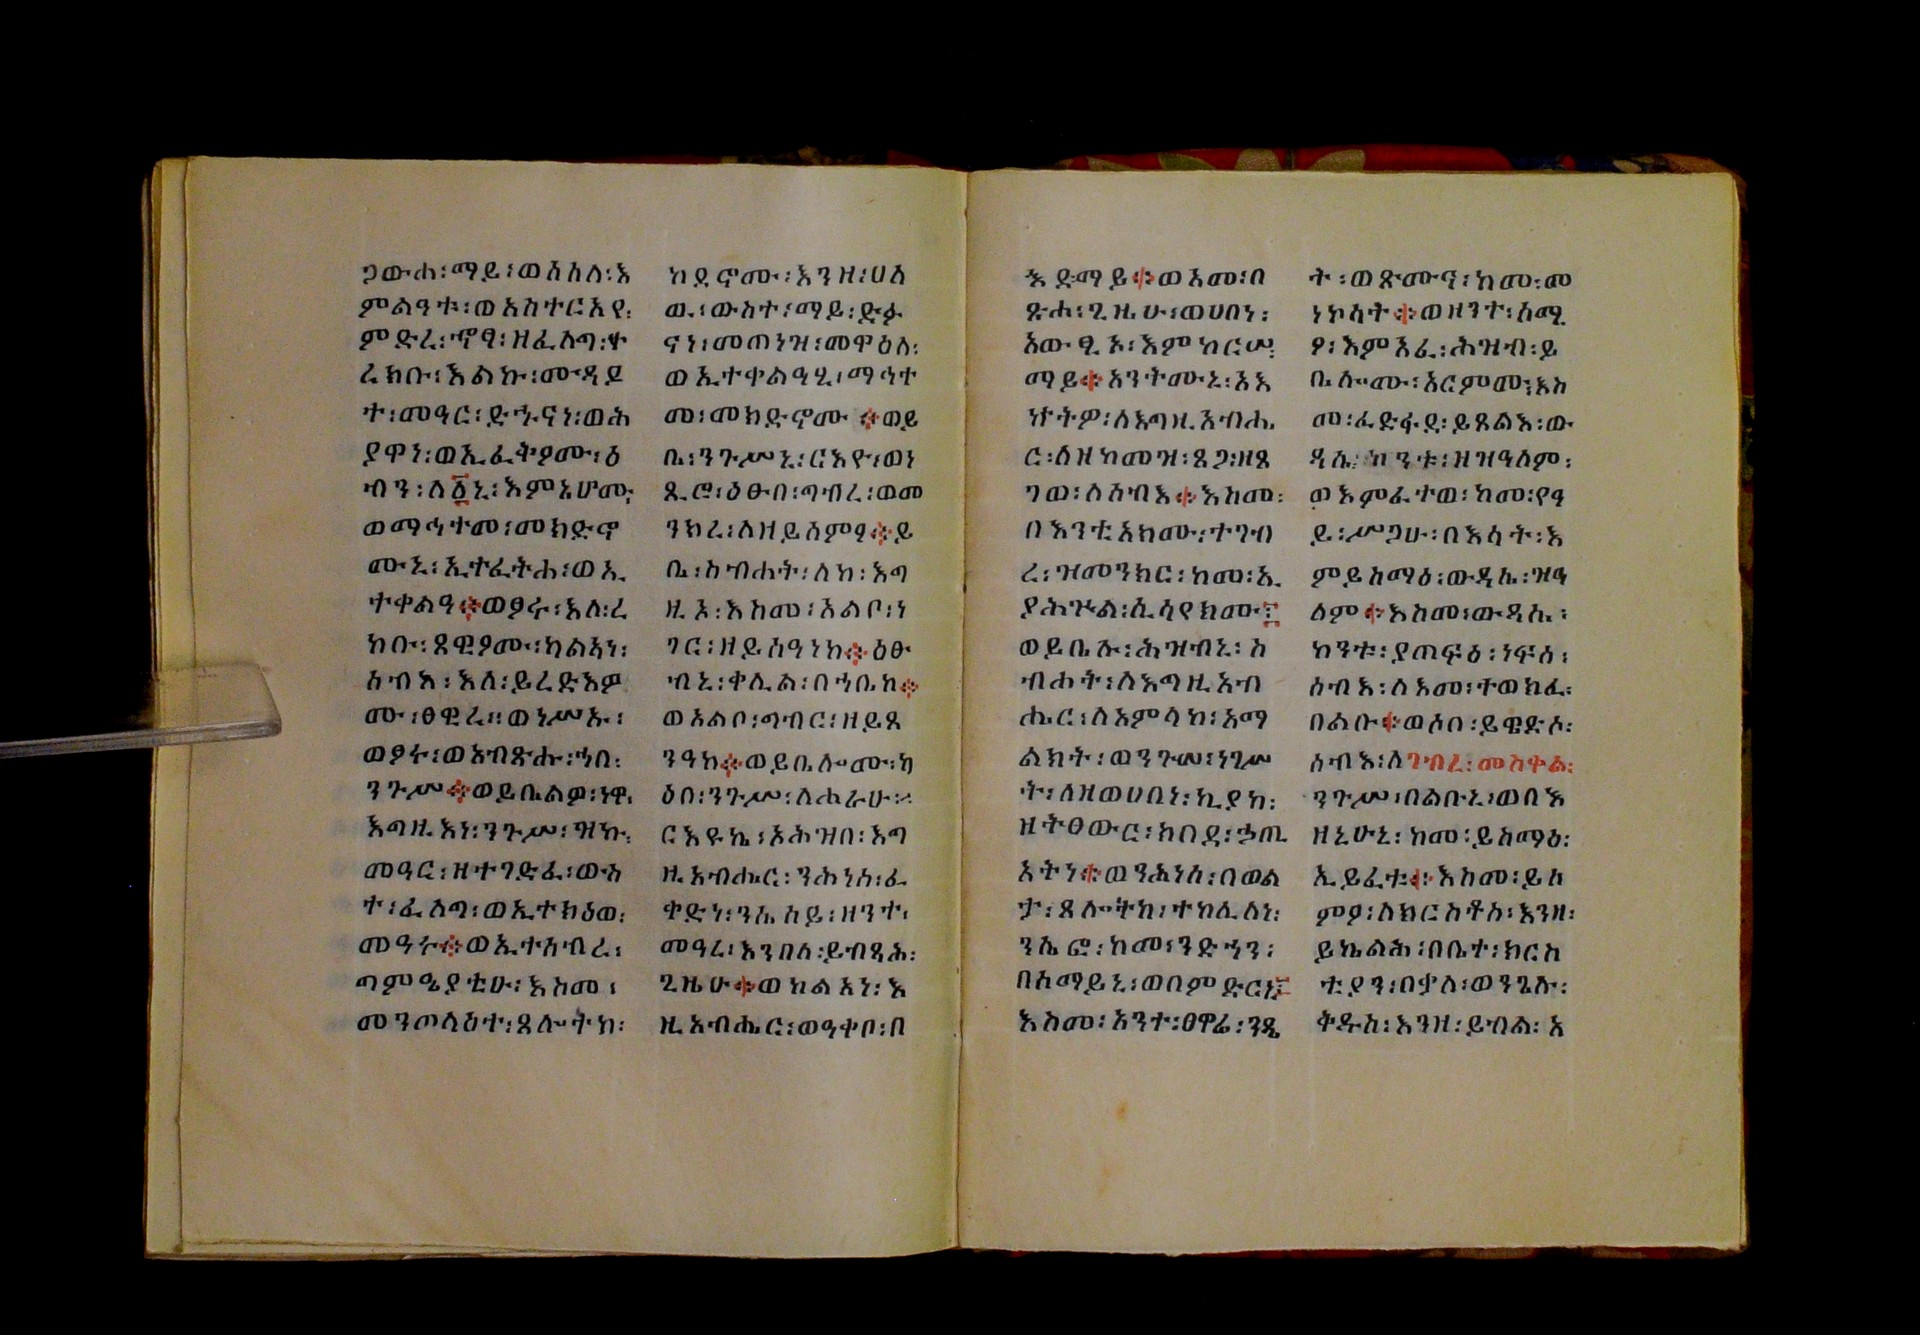 ጋውሐ፡ማይ፡ወአስለ፡እ
ምልዓቱ፡ወአስተርአየ፡
ምድረ፡ኆፃ፡ዘፈለግ፡ቀ
ረከቡ፡እልኩ፡ሙዳየ
ት፡መዓር፡ድኁናነ፡ወሕ
ያዋነ፡ወኢፈትዖሙ፡ዕ
ብን፡ለ፩ኒ፡እምኔሆሙ፡
ወማኅተመ፡መክድኖ
ሙኒ፡ኢተፈትሐ፡ወኢ
ተቀልዓ፨ወፆሩ፡እለ፡ረ
ከቡ፡ጸዊፆሙ፡ካልኣነ፡
ሰብእ፡እለ፡ይረድእዎ
ሙ፡ፀዊረ፡፡ወነሥኡ፡
ወፆሩ፡ወአብጽሑ፡ኀበ፡
ንጉሥ፨ወይቤልዎ፡ነዋ፡
እግዚእነ፡ንጉሥ፡ዝኩ፡
መዓር፡ዘተገድፈ፡ውስ
ተ፡ፈለግ፡ወኢተክዕወ፡
መዓሩ፨ወኢተሰብረ፡
ጣምዔያቲሁ፡እስመ፡
መንጦላዕተ፡ጸሎትከ፡
ከደኖሙ፡እንዘ፡ሀለ
ዉ፡ውስተ፡ማይ፡ድኁ
ናነ፡መጠነዝ፡መዋዕለ፡
ወኢተቀልዓሂ፡ማኅተ
መ፡መክድኖሙ፨ወይ
ቤ፡ንጉሥኒ፡ርእዮ፡ወነ
ጺሮ፡ዕፁበ፡ግብረ፡ወመ
ንክረ፡ለዘይሰምዓ፨ይ
ቤ፡ስብሐት፡ለከ፡እግ
ዚኦ፡እስመ፡አልቦ፡ነ
ገር፡ዘይስዓነከ፨ዕፁ
ብኒ፡ቀሊል፡በኀቤከ፨
ወአልቦ፡ግብር፡ዘይጸ
ንዓከ፨ወይቤሎሙ፡ካ
ዕበ፡ንጉሥ፡ለሐራሁ፡፡
ርእዩኬ፡አሕዛበ፡እግ
ዚአብሔር፡ንሕነሰ፡ፈ
ቀድነ፡ንሴሰይ፡ዘንተ፡
መዓረ፡እንበለ፡ይብጻሕ፡
ጊዜሁ፨ወካልአነ፡እ
ዚአብሔር፡ወዓቀቦ፡በ
እደ፡ማይ፨ወአመ፡በ
ጽሐ፡ጊዜሁ፡ወሀበነ፡
አውፂኦ፡እምከርሠ፡
ማይ፨አንትሙኒ፡አእ
ኰትዎ፡ለእግዚአብሔ
ር፡ለዘከመዝ፡ጸጋ፡ዘጸ
ገወ፡ለሰብእ፨እስመ፡
በእንቲአክሙ፡ተገብ
ረ፡ዝመንክር፡ከመ፡ኢ
ያሕጕል፡ሲሳየክሙ፡፡
ወይቤሉ፡ሕዝብኒ፡ስ
ብሐት፡ለእግዚአብ
ሔር፡ለአምላከ፡አማ
ልክት፡ወንጉሠ፡ነገሥ
ት፡ለዘወሀበነ፡ኪያከ፡
ዘትፀውር፡ክበደ፡ኃጢ
አትነ፨ወንሕነሰ፡በወል
ታ፡ጸሎትከ፡ተከሊለነ፡
ንሴፎ፡ከመ፡ንድኀን፡
በሰማይኒ፡ወበምድርኒ፡፡
እስመ፡አንተ፡ፀዋሬ፡ንዴ
ት፡ወጽሙና፡ከመ፡መ
ነኮሳት፨ወዘንተ፡ሰሚ
ዖ፡እምአፈ፡ሕዝብ፡ይ
ቤሎሙ፡አርምሙ፡እስ
መ፡ፈድፋደ፡ይጸልእ፡ው
ዳሴ፡ከንቱ፡ዘዝዓለም፡
ወእምፈተወ፡ከመ፡የዓ
ይ፡ሥጋሁ፡በእሳት፡እ
ምይስማዕ፡ውዳሴ፡ዝዓ
ለም፨እስመ፡ውዳሴ፡
ከንቱ፡ያጠፍዕ፡ነፍሰ፡
ሰብእ፡ለእመ፡ተወክፈ፡
በልቡ፨ወሶበ፡ይዌድሶ፡
ሰብእ፡ለገብረ፡መስቀል፡
ንጉሥ፡በልቡኒ፡ወበእ
ዘኒሁኒ፡ከመ፡ይስማዕ፡
ኢይፈቱ፨እስመ፡ይስ
ምዖ፡ለክርስቶስ፡እንዘ፡
ይኬልሕ፡በቤተ፡ክርስ
ቲያን፡በቃለ፡ወንጌሉ፡
ቅዱስ፡እንዘ፡ይብል፡አ